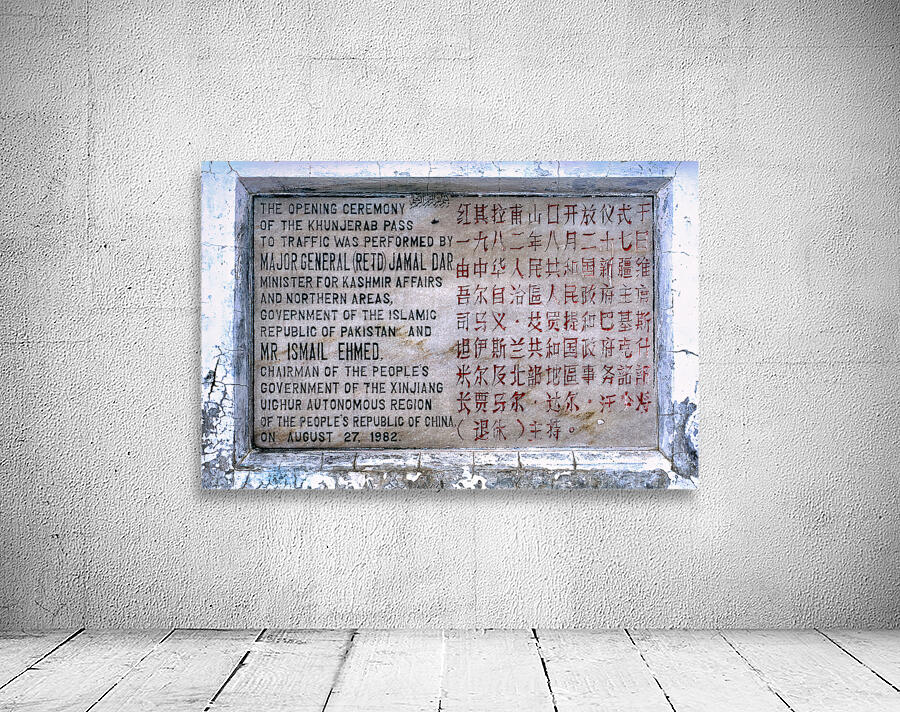 THE OPENING CEREMONY
OF THE KHUNJERAB PASS
TO TRAFFIC WAS PERFORMED BY
MAJOR GENERAL (RETD) JAMAL DAR
MINISTER FOR KASHMIR AFFAIRS
AND NORTHERN AREAS,
GOVERNMENT OF THE ISLAMIC
REPUBLIC OF PAKISTAN AND
MR ISMAIL EHMED.
CHAIRMAN OF THE PEOPLE'S
GOVERNMENT OF THE XINJIANG
UIGHUR AUTONOMOUS REGION
OF THE PEOPLE'S REPUBLIC OF CHINA
ON AUGUST 27, 1982.
红其拉甫山口开放仪式于
一九八二年八月二十七日
由中华人民共和国新疆维
吾尔自治區人民政府主席
司马义·艾買提和巴基斯
坦伊斯兰共和国政府克什
米尔及北部地區事务部
长贾马尔·达尔·将
(退休)主持。